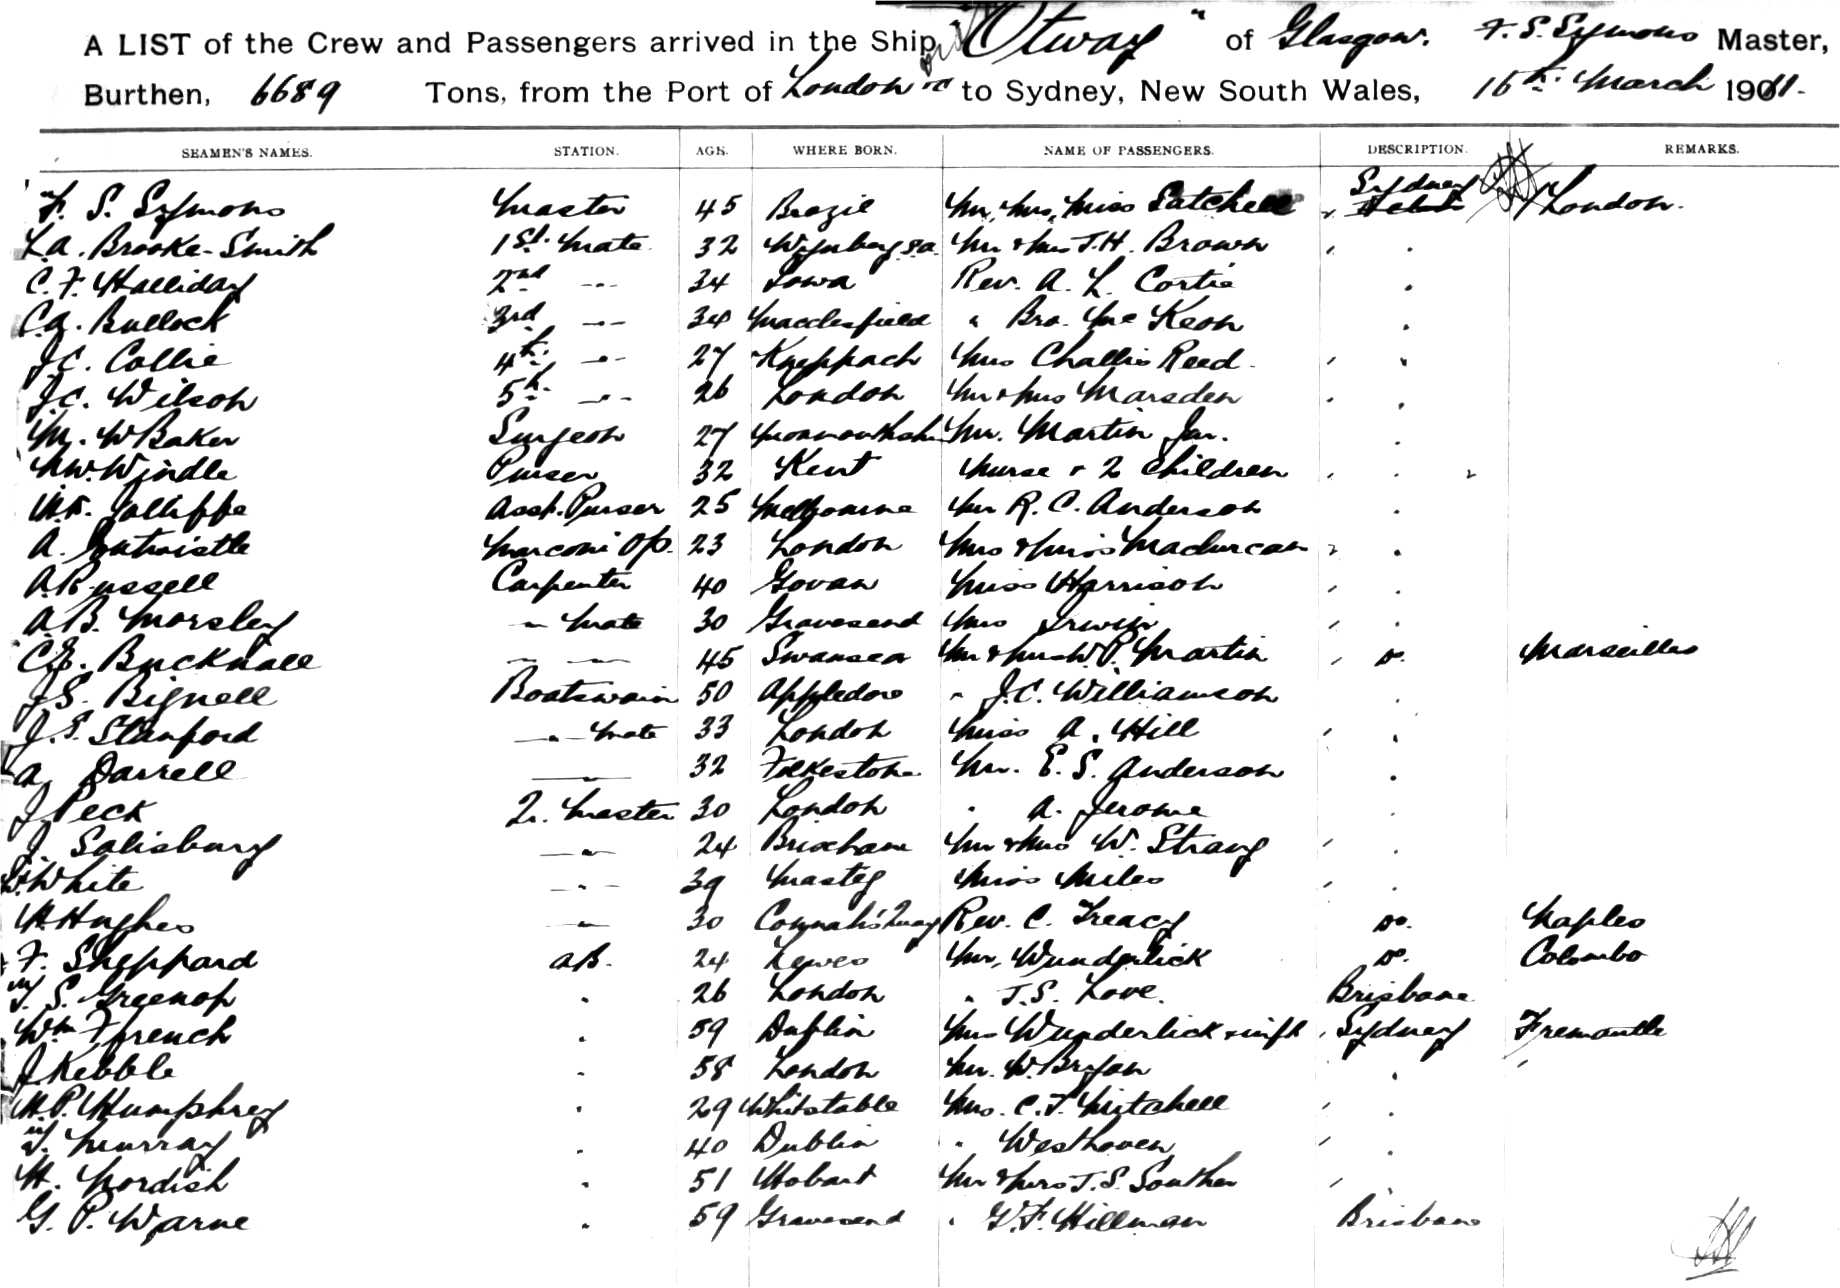 A LIST of the Crew and Passengers arrived in the Ship "Otway" of Glasgow. F. S. Symons Master,
Burthen, 6689 Tons, from the Port of London to Sydney, New South Wales, 16th March 1911.
SEAMEN'S NAMES. STATION. AGE. WHERE BORN. NAME OF PASSENGERS. DESCRIPTION. REMARKS.
F. S. Symons Master 45 Brazil Mr, Mrs, Miss Satchell Sydney London.
L.A. Brooke-Smith 1st. Mate 32 Wynberg S.a. Mr & Mrs J.H. Brown
C. F. Halliday 2nd 34 Iowa Rev. A. L. Cortie
C.A. Bullock 3rd 34 Macclesfield " Bro. Mc Keon
J.C. Collie 4th. 27 Mrs Challis Reed
J.C. Wilson 5th. 26 London Mr & Mrs Marsden
M. W Baker Surgeon 27 Mr. Martin Jnr.
Windle Purser 32 Kent Nurse & 2 Children
Jolliffe Asst. Purser 25 Melbourne Mr R. C. Anderson
A. Entwistle Marconi Op. 23 London Mrs & Miss
A. Russell Carpenter 40 Govan Miss Harrison
A.B. Morsley " Mate 30 Gravesend Mrs Irwin
C.E. Bucknall " " 45 Swansea Mr & Mrs W.P. Martin Do. Marseilles
J.S. Bignell Boatswain 50 Appledore " J.C. Williamson
J.S. Stanford " Mate 33 London Miss A. Hill
A. Darrell " 32 Folkestone Mr. E. S. Anderson
J Peck Q. Master 30 London " A. Jerome
J Salisbury " 24 Brixham Mr & Mrs W. Strang
White " 39 Maesteg Miss Miles
H Hughes " 30 Connah's Quay Rev. C. Treacy Do. Naples
F. Sheppard AB. 24 Lewes Mr. Wunderlick Do. Colombo
S. Greenop " 26 London " J.S. Love. Brisbane
Wm Ffrench " 59 Dublin Mrs Wunderlick & inft Sydney Fremantle
J Kebble " 58 London Mr. W. Bryan
H.P. Humphrey " 29 Whitstable Mrs. C.F. Mitchell
Murray " 40 Dublin " Westhoven
H. Nordish " 51 Hobart Mr & Mrs J.S. Souther
G. P. Warne " 59 Gravesend " G.F. Hillman Brisbane